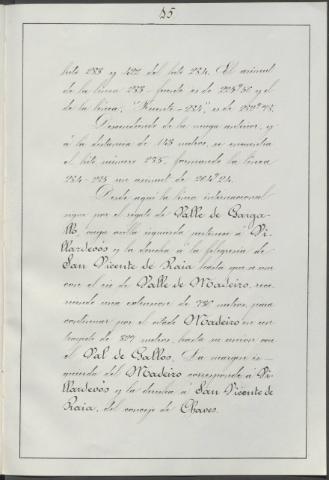 85
hito 283 y 422 del hito 284. El azimut
de la línea 283 - fuente es de y el
de la línea, "Fuente - 284", es de
Descendiendo de la vaga anterior, y
á la distancia de 143 metros, se encuentra
el hito número 285, formando la línea
284-285 un azimut de 204º24.
Desde aquí la línea internacional
sigue por el regato de Valle de Garga-
llo, cuya orilla izquierda pertenece á Vi-
llardevós y la derecha á la feligresía de
San Vicente de Raia hasta que se une
con el río de Valle de Madeiro, reco-
rriendo una extensión de 730 metros, para
continuar por el citado Madeiro en un
trayecto de 827 metros, hasta su unión con
el Val de Gallos. La margen iz-
quierda del Madeiro corresponde á Vi-
llardevós y la derecha á San Vicente de
Raia, del concejo de Chaves.